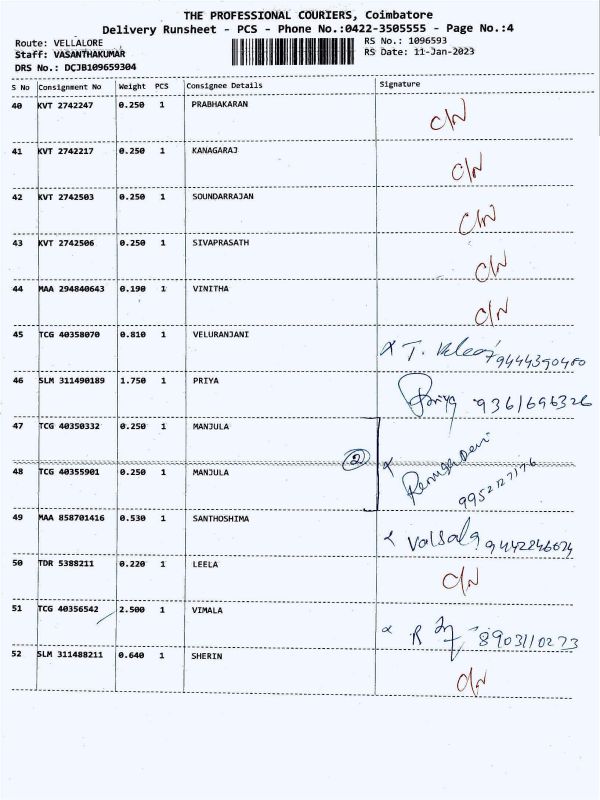 THE PROFESSIONAL COURIERS, Coimbatore
Delivery Runsheet - PCS - Phone No.:0422-3505555 - Page No.:4
Route: VELLALORE
Staff: VASANTHAKUMAR
DRS No.: DCJB109659304
RS No.: 1096593
RS Date: 11-Jan-2023
S No Consignment No Weight PCS Consignee Details Signature
40 KVT 2742247 0.250 1 PRABHAKARAN C/N
41 KVT 2742217 0.250 1 KANAGARAJ C/N
42 KVT 2742503 0.250 1 SOUNDARRAJAN C/N
43 KVT 2742506 0.250 1 SIVAPRASATH C/N
44 MAA 294840643 0.190 1 VINITHA C/N
45 TCG 40358070 0.810 1 VELURANJANI T. 9444390480
46 SLM 311490189 1.750 1 PRIYA Priya 9361696326
47 TCG 40350332 0.250 1 MANJULA
2
48 TCG 40355901 0.250 1 MANJULA
49 MAA 858701416 0.530 1 SANTHOSHIMA Valsala 9442246674
50 TDR 5388211 0.220 1 LEELA C/N
51 TCG 40356542 2.500 1 VIMALA R 8903110273
52 SLM 311488211 0.640 1 SHERIN C/N